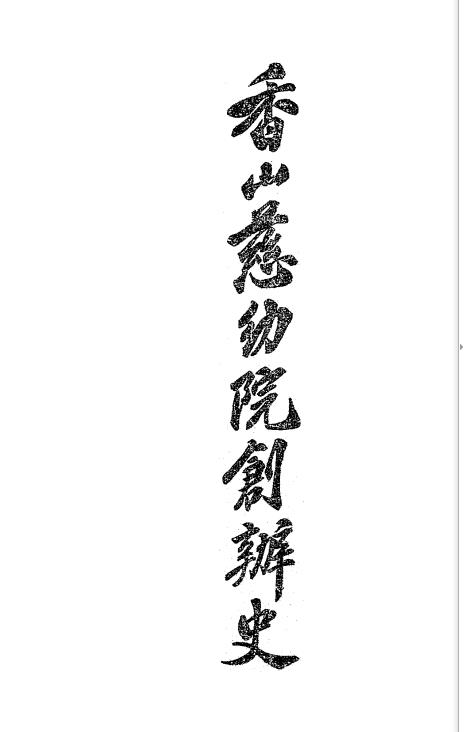 香山慈幼院創辦史